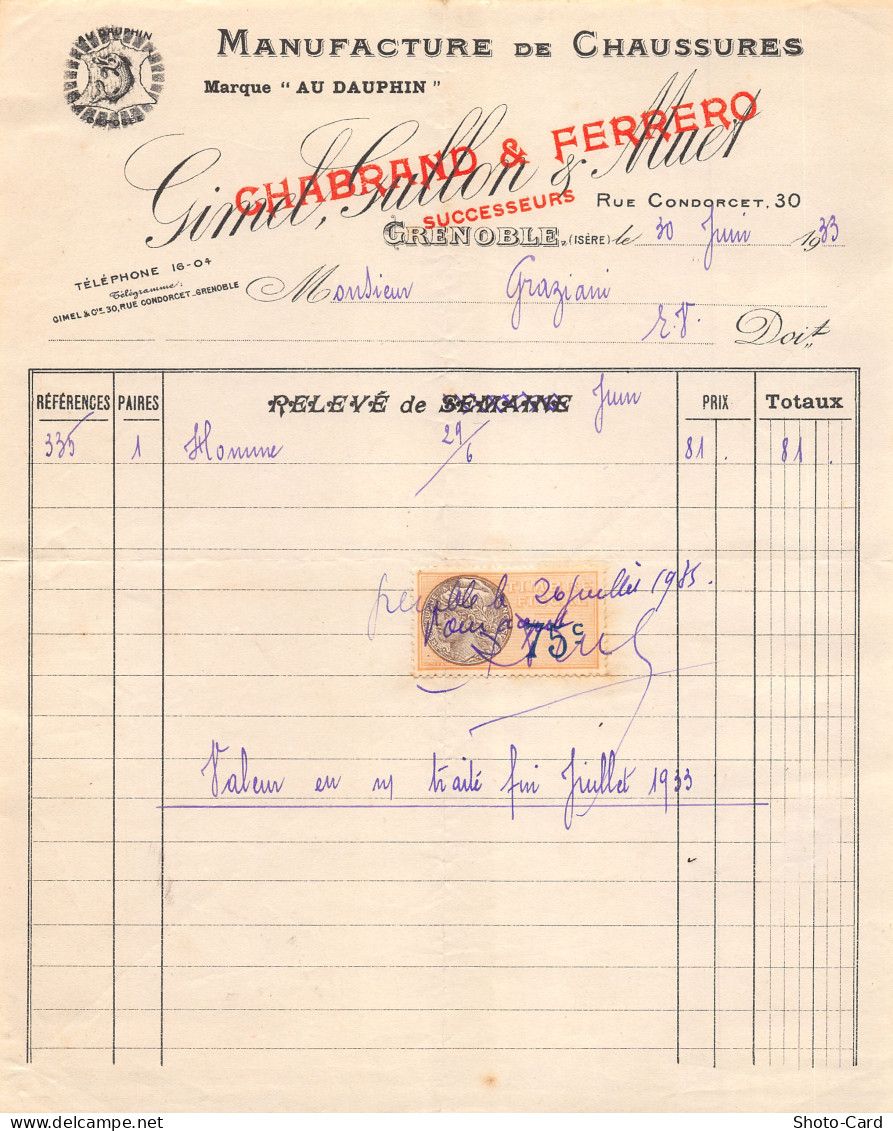 AU DAUPHIN
MANUFACTURE DE CHAUSSURES
Marque " AU DAUPHIN "
Gimel, Gullon & Muet
CHABRAND & FERRERO
SUCCESSEURS
RUE CONDORCET, 30
GRENOBLE, (ISÈRE) le 30 Juin 1933
TÉLÉPHONE 16-04
Télégramme:
GIMEL & Cie 30, RUE CONDORCET_GRENOBLE
Monsieur Graziani
E.V. Doit
RÉFÉRENCES PAIRES RELEVÉ de SEMAINE Juin PRIX Totaux
335 1 Homme 29/6 81. 81.
26 juillet 1933.
75c
Valeur en n/ traité fin Juillet 1933
Shoto-Card